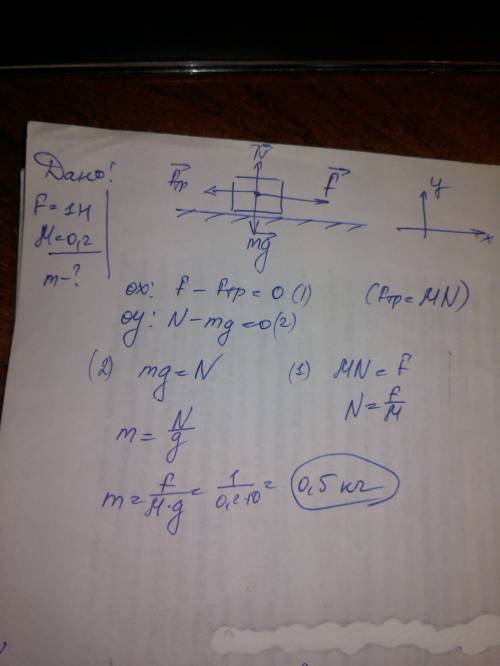 Дано:
F = 1Н
μ = 0,2
m - ?
N
Fтр
F
mg
y
x
ox: F - Fтр = 0 (1) (Fтр = μN)
oy: N - mg = 0 (2)
(2) mg = N (1) μN = F
N = F/μ
m = N/g
m = F/(μ·g) = 1/(0,2·10) = 0,5 кг